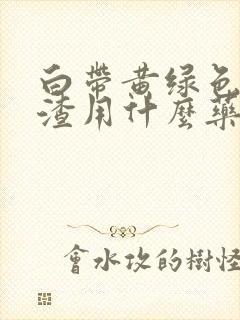 白帶黄绿色
渣用什麼藥
會水攻的樹怪